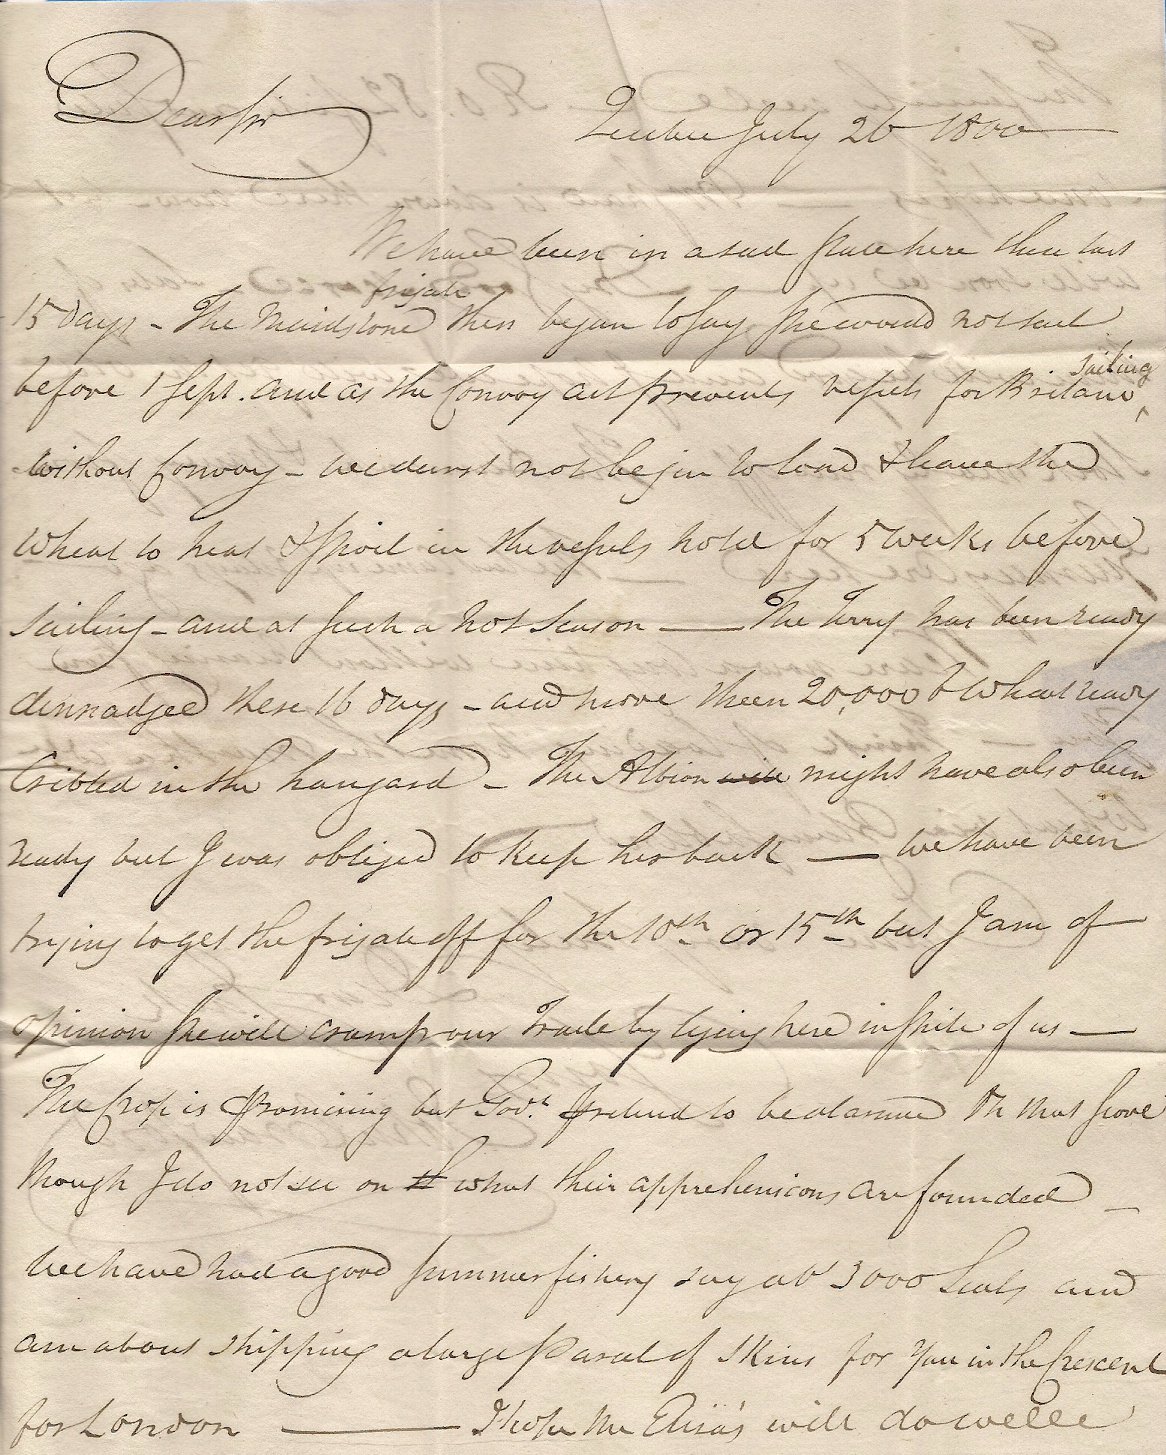 Dear Sir
Quebec July 26 1800
We have been in a sad state here these last
frigate
15 days - The Maidstone then began to say she would not sail
sailing
before 1 Sept. and as the Convoy act prevents vessels for Britain
without Convoy - we durst not begin to load & have the
Wheat to heat & spoil in the vessels hold for 5 weeks before
sailing - and at such a hot season — The Terry has been ready
dunnadged these 16 days - and more then 20,000 b Wheat ready
Cribled in the hangard - The Albion will might have also been
ready but I was obliged to keep her back — we have been
trying to get the frigate off for the 10th or 15th but I am of
opinion she will cramp our Trade by lying here in spite of us —
The Crop is promising but Govt. pretend to be alarmed
though I do not see on th what their apprehensions are founded —
we have had a good summer fishery say abt 3000 Seals and
am about shipping a large parcel of skins for you in the Crescent
for London — I hope the Eliza's will do well